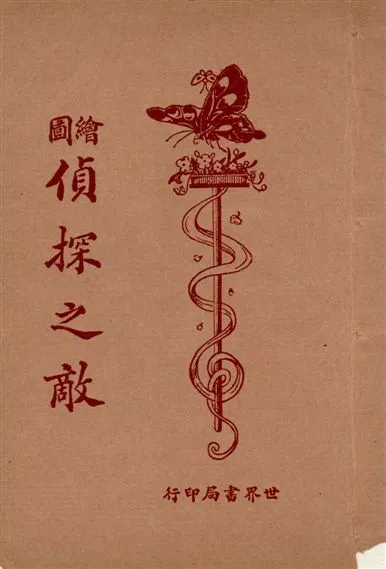 繪圖
偵探之敵
世界書局印行